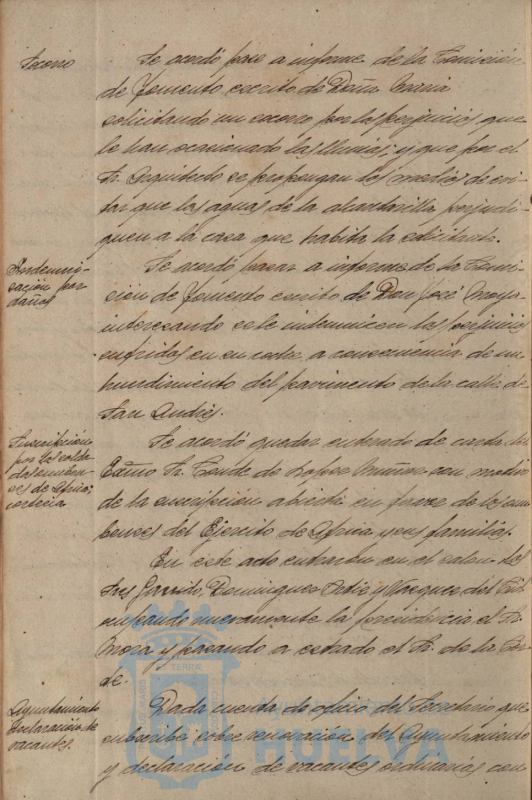 Socorro
Se acordó pase a informe de la Comisión
de fomento escrito de Doña Maria
solicitando un socorro por los perjuicios que
le han ocasionado las lluvias, y que por el
Sr. Arquitecto se propongan los medios de evi-
tar que las aguas de la alcantarilla perjudi-
quen a la casa que habita la solicitante.
Indemni-
zación por
daños
Se acordó pasar a informe de la Comi-
sión de fomento escrito de Don José
interesando se le indemnicen los perjuicios
sufridos en su casa, a consecuencia de un
hundimiento del pavimento de la calle de
San Andrés.
Suscripción
por los solda-
dos
de Africa;
Se acordó quedar enterado de carta del
Excmo Sr. Conde de Lopez Muñoz con motivo
de la suscripción abierta en favor de los
del Ejercito de Africa y sus familias.
En este acto entraron en el salon los
Sres Garrido, Dominguez Ortiz y Vazquez del
ocupando nuevamente la presidencia el Sr.
Mora y pasando a estrado el Sr. de la Cor-
te.
Ayuntamiento
declaración de
vacantes.
Dada cuenta de oficio del Secretario que
subscribe sobre renovación del Ayuntamiento
y declaración de vacantes ordinarias con
HUELVA